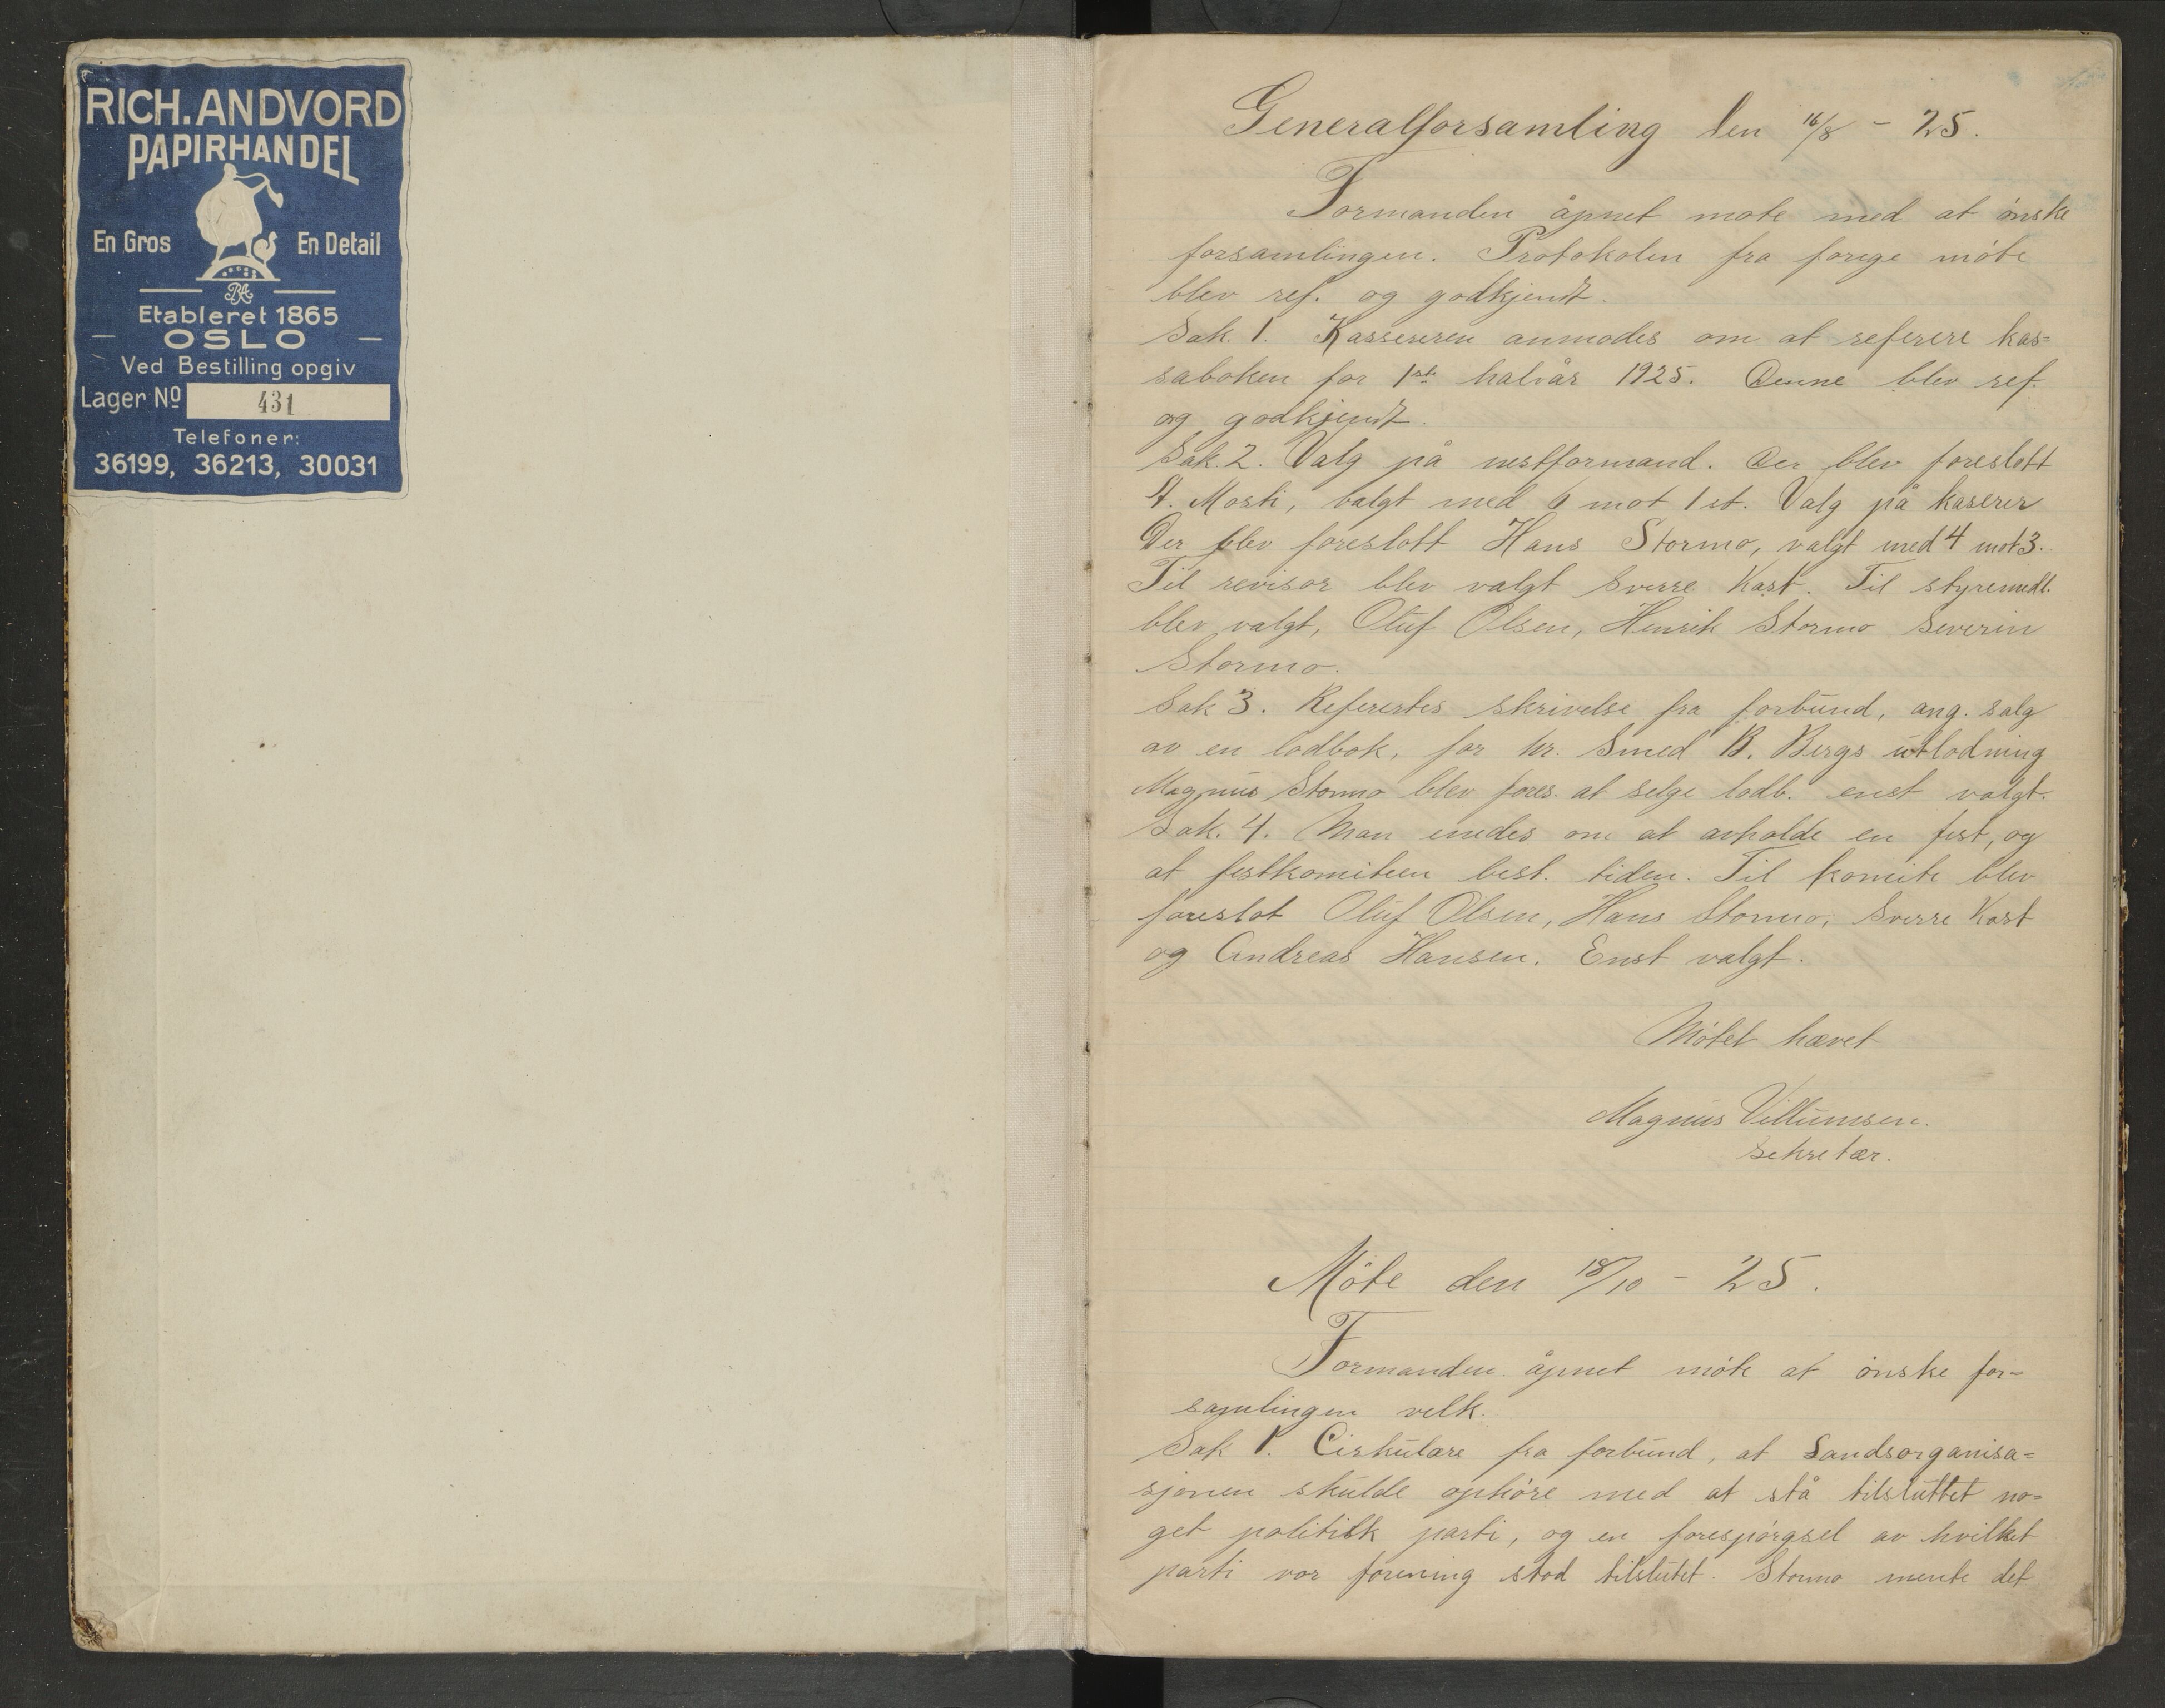 RICH. ANDVORD
PAPIRHANDEL
En Gros En Detail
RA
Etableret 1865
— OSLO —
Ved Bestilling opgiv
Lager Nº 431
Telefoner:
36199, 36213, 30031
Generalforsamling den 16/8 - 25.
Formanden åpnet møte med at ønske
forsamlingen. Protokolen fra forige møte
blev ref. og godkjendt.
Sak. 1. Kassereren anmodes om at referere kas=
saboken for 1ste halvår 1925. Denne blev ref.
og godkjendt.
Sak. 2. Valg på nestformand. Der blev foreslått
Mosti, valgt med 6 mot 1 st. Valg på kaserer
Der blev foreslått Hans Stormo, valgt med 4 mot 3.
Til revisor blev valgt Sverre Kast. Til styremedl.
blev valgt, Oluf Olsen, Henrik Stormo Severin
Stormo.
Sak 3. Referertes skrivelse fra forbund, ang. salg
av en lodbok, for hr. Smed B. Bergs utlodning
Magnus Stormo blev fores. at selge lodb. enst valgt.
Sak. 4. Man enedes om at avholde en fest, og
at festkomiteen best. tiden. Til komite blev
foreslot Oluf Olsen, Hans Stormo, Sverre Kast
og Andreas Hansen. Enst valgt.
Møtet hævet
Magnus Villumsen.
Sekretær.
Møte den 18/10 - 25.
Formanden åpnet møte at ønske for-
samlingen velk.
Sak 1. Cirkulære fra forbund, at Landsorganisa=
sjonen skulde ophøre med at stå tilsluttet no=
get politisk parti, og en forespørgsel av hvilket
parti vor forening stod tilslutet. Stormo mente det